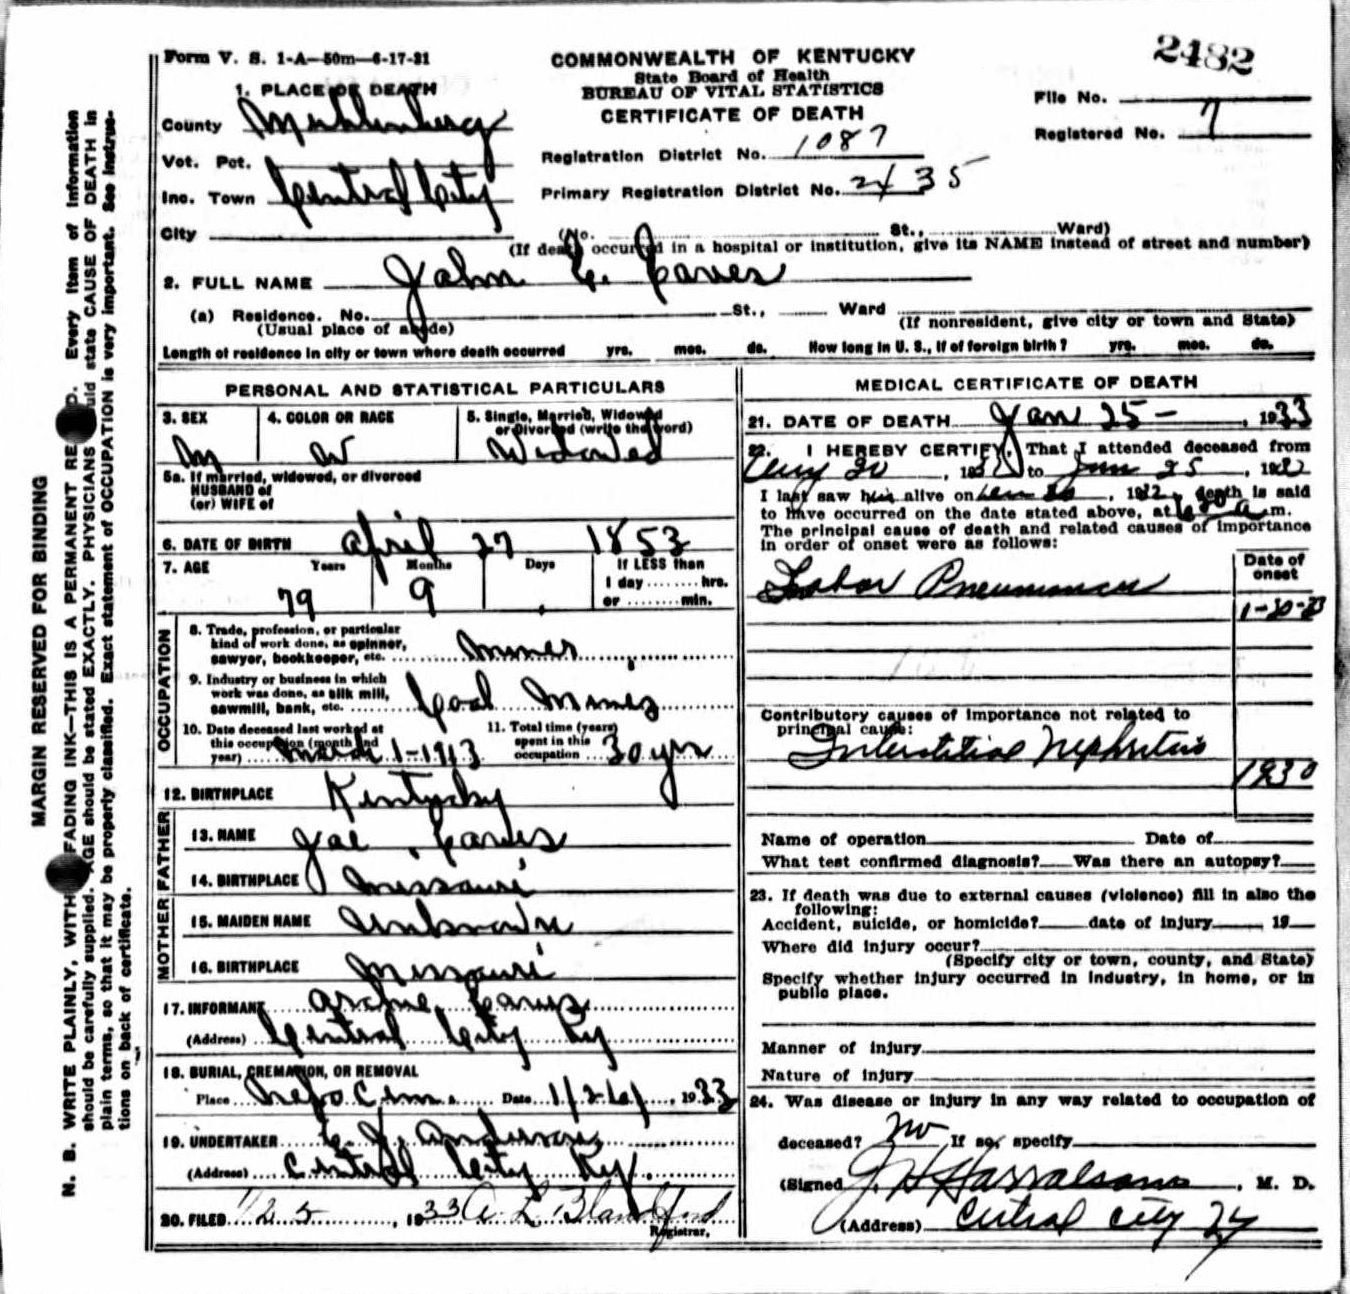 Form V. S. 1-A—50m—6-17-31
2482
COMMONWEALTH OF KENTUCKY
State Board of Health
BUREAU OF VITAL STATISTICS
CERTIFICATE OF DEATH
File No.
Registered No. 7
1. PLACE OF DEATH
County Muhlenberg
Vot. Pct.
Inc. Town Central City
City
Registration District No. 1087
Primary Registration District No. 2435
(No. St., Ward)
(If death occurred in a hospital or institution, give its NAME instead of street and number)
2. FULL NAME John C. Eaves
(a) Residence. No. St., Ward
(Usual place of abode) (If nonresident, give city or town and State)
Length of residence in city or town where death occurred yrs. mos. ds. How long in U. S., if of foreign birth? yrs. mos. ds.
PERSONAL AND STATISTICAL PARTICULARS
3. SEX M
4. COLOR OR RACE W
5. Single, Married, Widowed or Divorced (write the word) Widowed
5a. If married, widowed, or divorced
HUSBAND of
(or) WIFE of
6. DATE OF BIRTH April 27 1853
7. AGE Years Months Days If LESS than
1 day hrs.
or min.
79 9
OCCUPATION
8. Trade, profession, or particular
kind of work done, as spinner,
sawyer, bookkeeper, etc. Miner
9. Industry or business in which
work was done, as silk mill,
sawmill, bank, etc. Coal Mines
10. Date deceased last worked at
this occupation (month and
year) March 1-1913
11. Total time (years)
spent in this
occupation 30 yrs
12. BIRTHPLACE Kentucky
FATHER
13. NAME Joe Eaves
14. BIRTHPLACE Missouri
MOTHER
15. MAIDEN NAME Unknown
16. BIRTHPLACE Missouri
17. INFORMANT Archie Eaves
(Address) Central City Ky
18. BURIAL, CREMATION, OR REMOVAL
Place Nebo Cem. Date 1/26/, 1933
19. UNDERTAKER Anderson
(Address) Central City Ky.
20. FILED 1/25, 1933 A L Blandford
Registrar.
MEDICAL CERTIFICATE OF DEATH
21. DATE OF DEATH Jan 25 - , 1933
22. I HEREBY CERTIFY, That I attended deceased from
Aug 30 , 19 to Jan 25 , 19
I last saw him alive on , 19 , death is said
to have occurred on the date stated above, at 630 a m.
The principal cause of death and related causes of importance
in order of onset were as follows:
Date of
onset
Lobar Pneumonia
1-20-33
Contributory causes of importance not related to
principal cause:
Interstitial Nephritis
1930
Name of operation Date of
What test confirmed diagnosis? Was there an autopsy?
23. If death was due to external causes (violence) fill in also the
following:
Accident, suicide, or homicide? date of injury 19
Where did injury occur?
(Specify city or town, county, and State)
Specify whether injury occurred in industry, in home, or in
public place.
Manner of injury
Nature of injury
24. Was disease or injury in any way related to occupation of
deceased? No If so, specify
(Signed J. H Harralson , M. D.
(Address) Central City Ky
MARGIN RESERVED FOR BINDING
N. B. WRITE PLAINLY, WITH FADING INK—THIS IS A PERMANENT RE D. Every item of information
should be carefully supplied. AGE should be stated EXACTLY. PHYSICIANS uld state CAUSE OF DEATH in
plain terms, so that it may be properly classified. Exact statement of OCCUPATION is very important. See instruc-
tions on back of certificate.